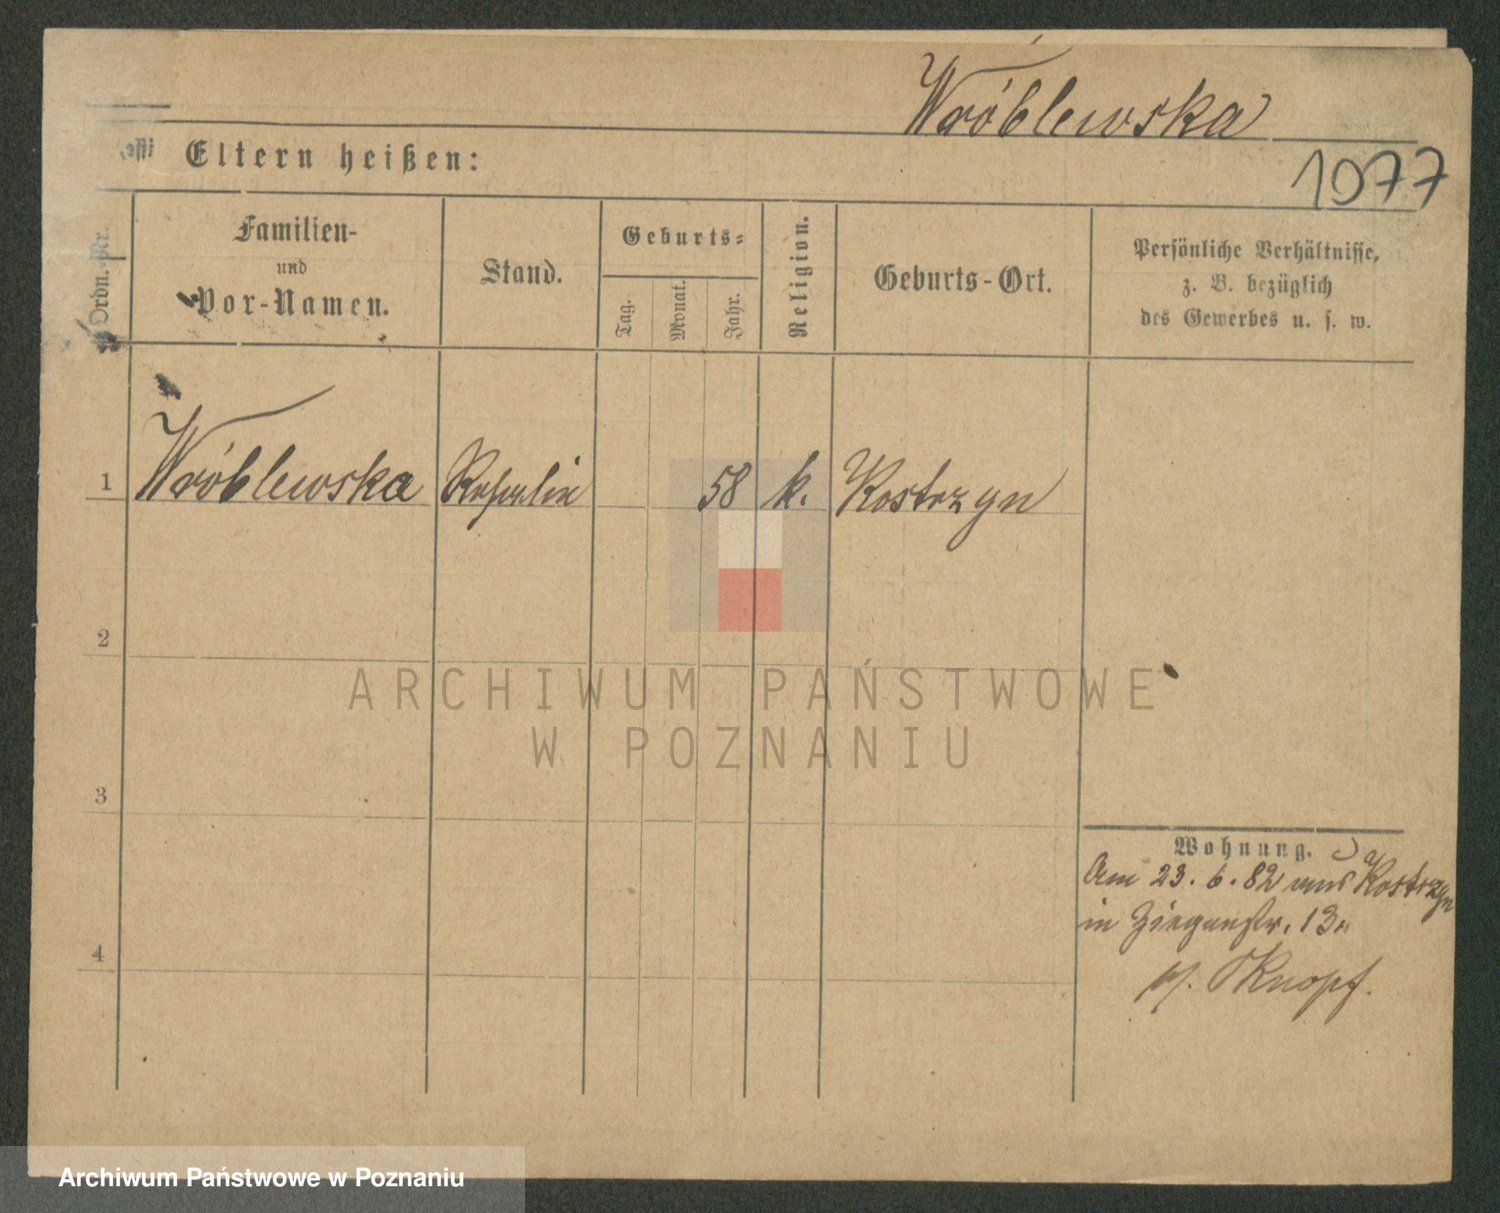 Wróblewska
Eltern heißen:
1077
Ordn.-Nr.
Familien-
und
Vor-Namen.
Stand.
Geburts-
Tag.
Monat.
Jahr.
Religion.
Geburts-Ort.
Persönliche Verhältnisse,
z. B. bezüglich
des Gewerbes u. s. w.
1 Wróblewska 58 k. Kostrzyn
2
3
4
Wohnung.
Am 23. 6. 82 aus Kostrzyn
in Ziegenstr. 13.
Knopf.
ARCHIWUM PAŃSTWOWE
W POZNANIU
Archiwum Państwowe w Poznaniu